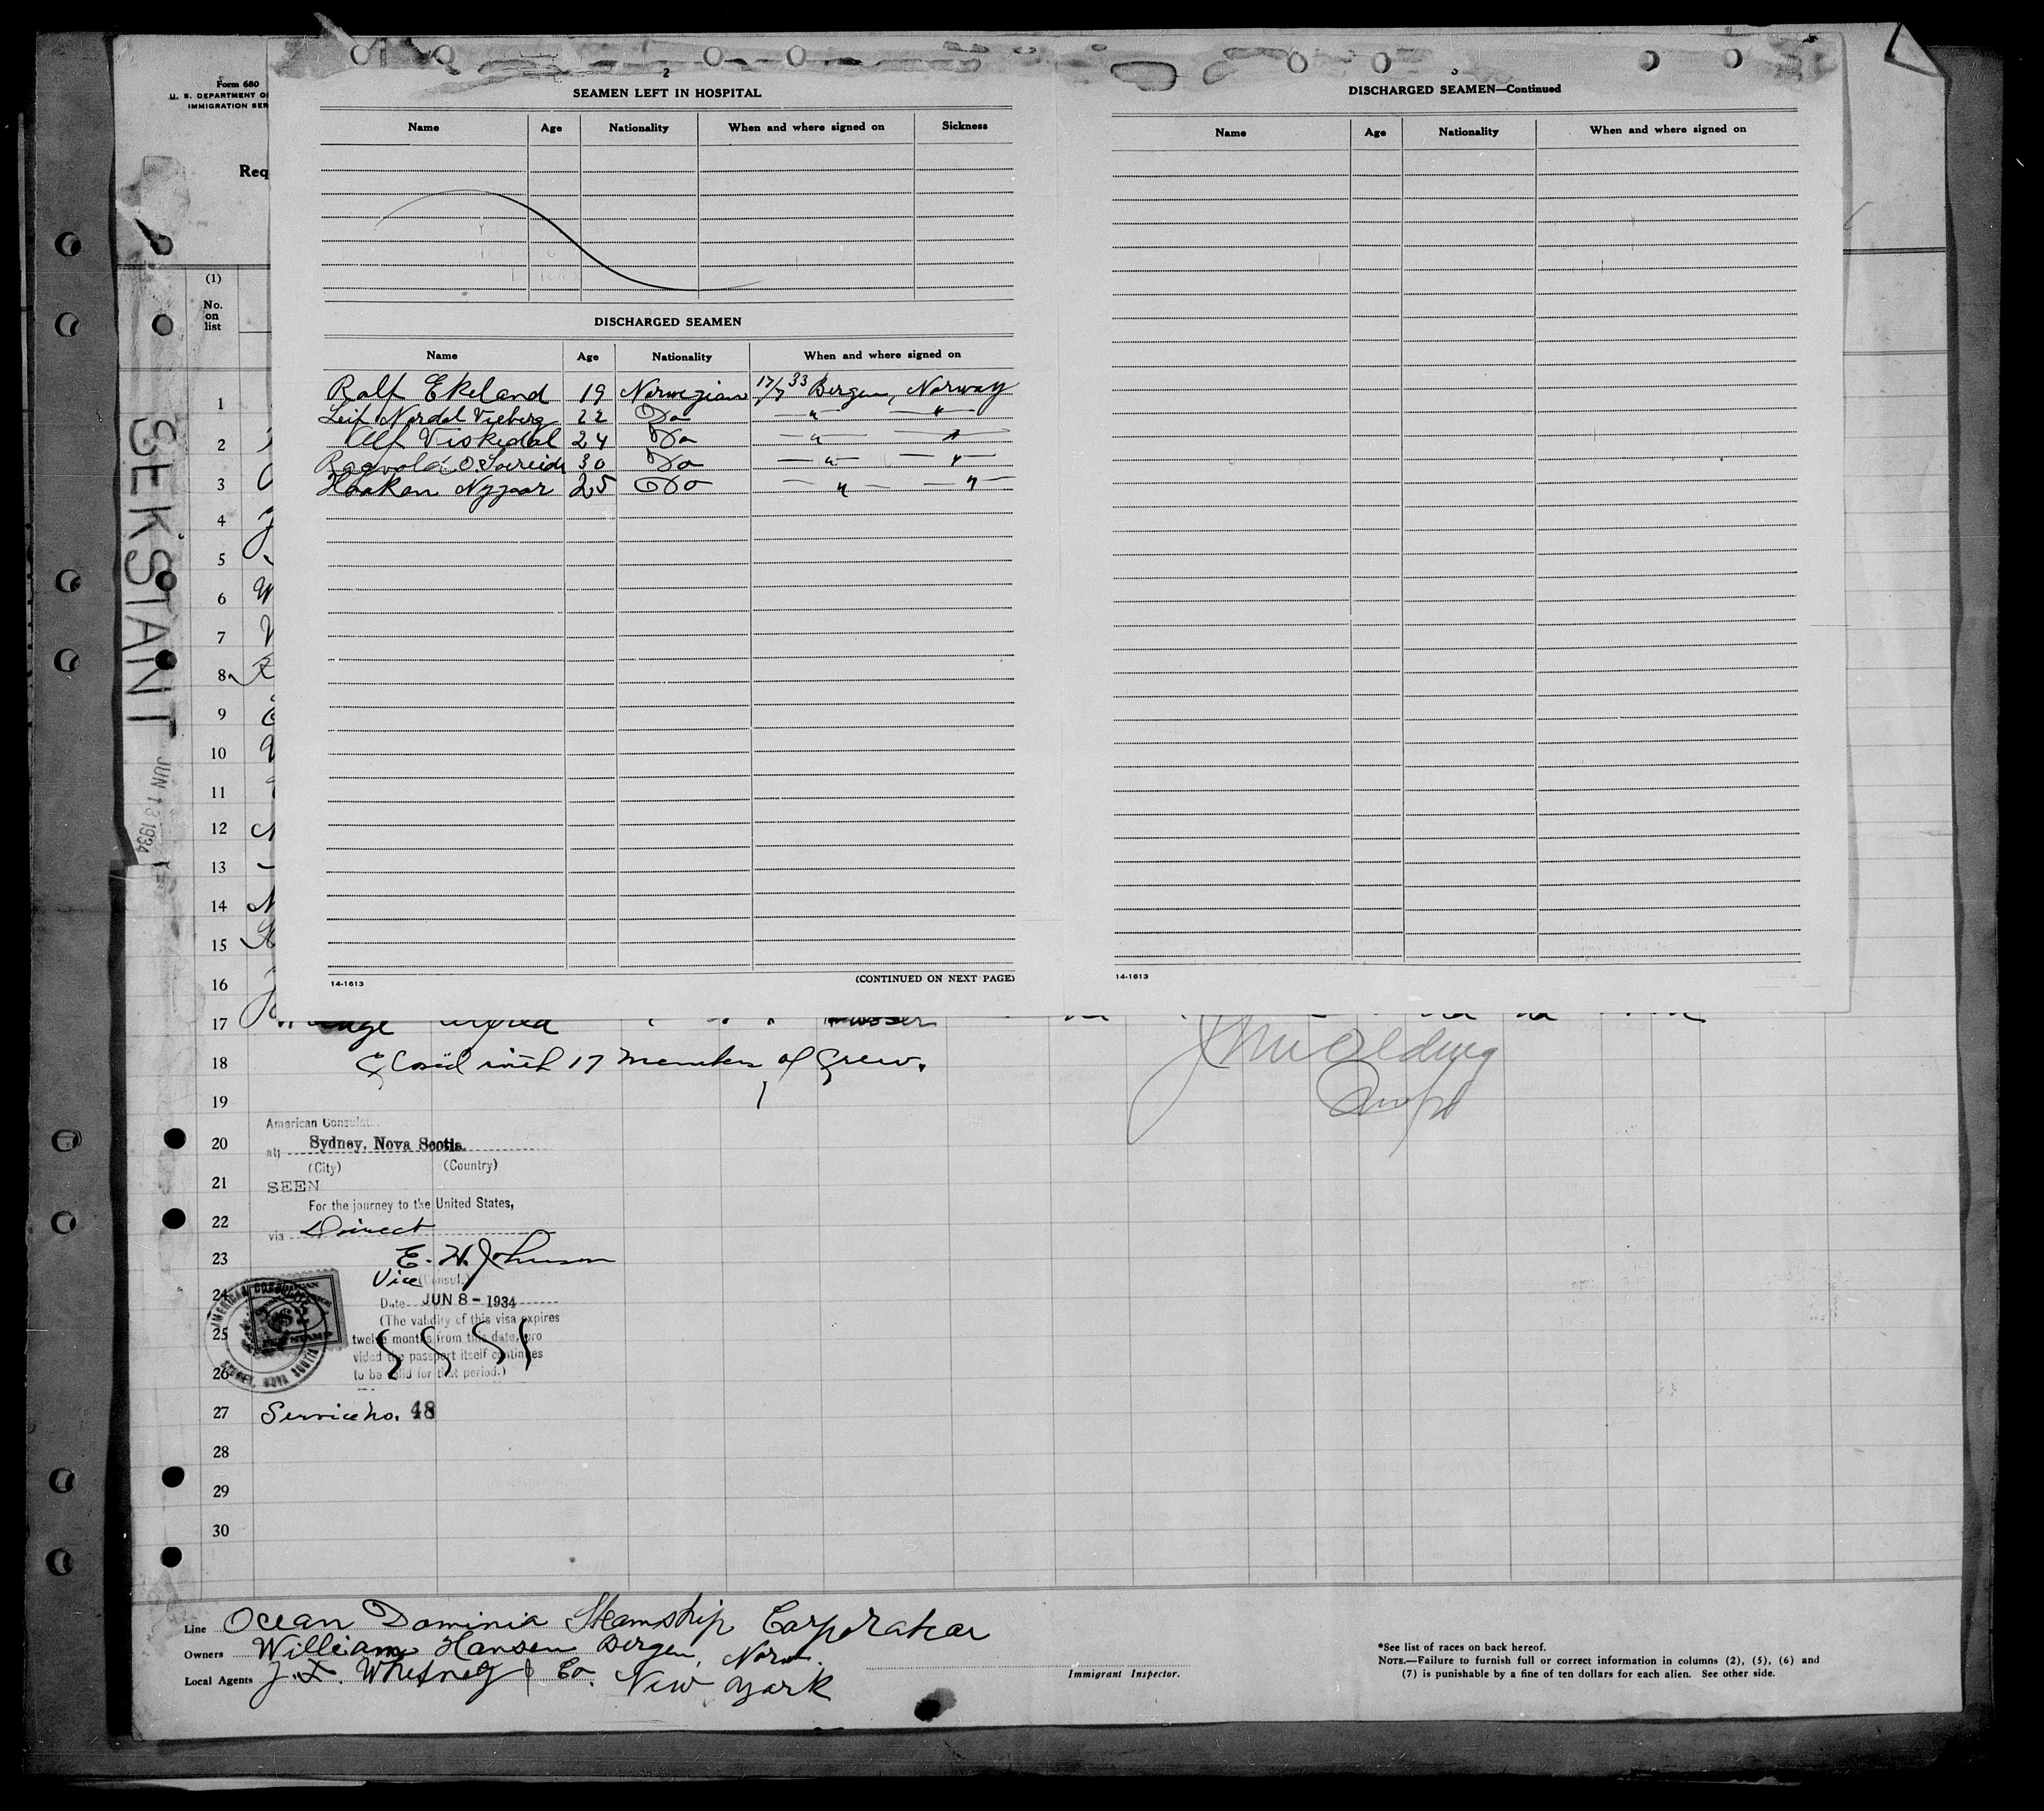 Form 680
U. S. DEPARTMENT O
IMMIGRATION SER
Req
2
SEAMEN LEFT IN HOSPITAL
Name Age Nationality When and where signed on Sickness
DISCHARGED SEAMEN
Name Age Nationality When and where signed on
Ralf Ekeland 19 Norwegian 17/7 33 Bergen, Norway
Leif Nordal Vieberg 22 Do — " — — " —
Alf Viskedal 24 Do — " — — " —
Ragvald O. Soereide 30 Do — " — — " —
Haakon Nygaar 25 Do — " — — " —
14-1613 (CONTINUED ON NEXT PAGE)
3
DISCHARGED SEAMEN—Continued
Name Age Nationality When and where signed on
14-1613
SEKSTANT JUN 13 1934
(1)
No.
on
list
1
2
3
4
5
6
7
8
9
10
11
12
13
14
15
16
17
18 Closed with 17 members of Crew.
19
American Consulat
20 at Sydney, Nova Scotia.
(City) (Country)
21 SEEN
For the journey to the United States,
22 via Direct
23 E. H. Johnson
Vice Consul
24 Date JUN 8 - 1934
(The validity of this visa expires
25 twelve months from this date, pro
vided the passport itself continues
26 to be valid for that period.)
AMERICAN CONSULATE
SYDNEY, NOVA SCOTIA
27 Service no. 48
28
29
30
Line Ocean Dominia Steamship Corporation
Owners William Hansen Bergen, Norw.
Local Agents J. F. Whitney & Co. New York
Immigrant Inspector.
*See list of races on back hereof.
NOTE.—Failure to furnish full or correct information in columns (2), (5), (6) and
(7) is punishable by a fine of ten dollars for each alien. See other side.